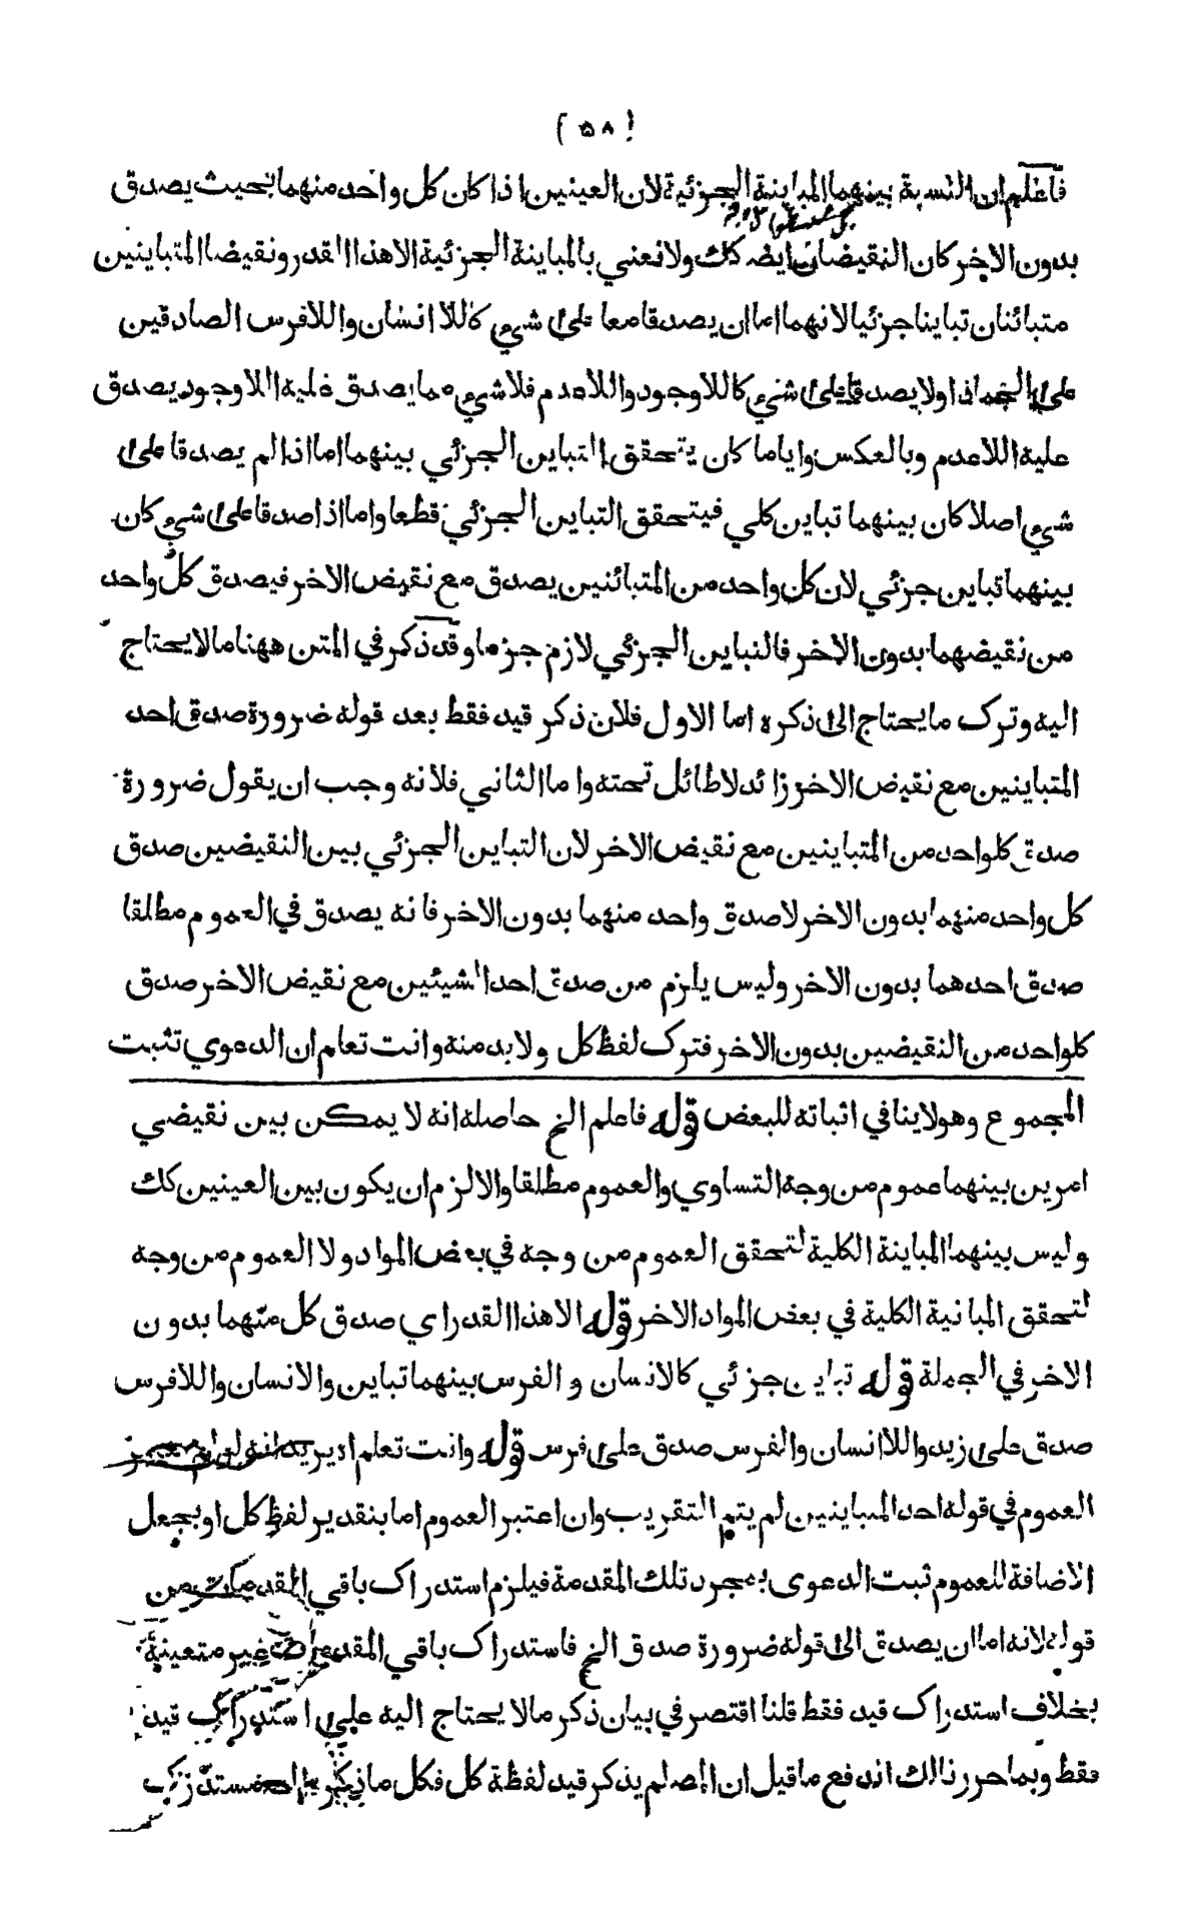 ( ۵۸ )
فاعلم ان النسبة بينهما المباينة الجزئية لان العينين اذا كان كل واحد منهما بحيث يصدق
بدون الاخر كان النقيضان ايضه كك ولا نعني بالمباينة الجزئية الا هذا القدر ونقيضا المتباينين
متبائنان تباينا جزئيا لانهما اما ان يصدقا معا على شيء كاللا انسان واللافرس الصادقين
على الجماد او لا يصدقا على شيء كاللاوجود واللاعدم فلا شيء مما يصدق عليه اللاوجود يصدق
عليه اللاعدم وبالعكس واياما كان يتحقق التباين الجزئي بينهما اما اذا لم يصدقا على
شيء اصلا كان بينهما تباين كلي فيتحقق التباين الجزئي قطعا واما اذا صدقا على شيء كان
بينهما تباين جزئي لان كل واحد من المتبائنين يصدق مع نقيض الاخر فيصدق كل واحد
من نقيضهما بدون الاخر فالتباين الجزئي لازم جزما وقد ذكر في المتن ههنا ما لا يحتاج
اليه وترك ما يحتاج الى ذكره اما الاول فلان ذكر قيد فقط بعد قوله ضرورة صدق احد
المتباينين مع نقيض الاخر زائد لا طائل تحته واما الثاني فلانه وجب ان يقول ضرورة
صدق كلواحد من المتباينين مع نقيض الاخر لان التباين الجزئي بين النقيضين صدق
كل واحد منهما بدون الاخر لا صدق واحد منهما بدون الاخر فانه يصدق في العموم مطلقا
صدق احدهما بدون الاخر وليس يلزم من صدق احد الشيئين مع نقيض الاخر صدق
كلواحد من النقيضين بدون الاخر فترك لفظ كل ولا بد منه وانت تعلم ان الدعوي تثبت
المجموع وهو لا ينافي اثباته للبعض قوله فاعلم الخ حاصله انه لا يمكن بين نقيضي
امرين بينهما عموم من وجه التساوي والعموم مطلقا والا لزم ان يكون بين العينين كك
وليس بينهما المباينة الكلية لتحقق العموم من وجه في بعض المواد ولا العموم من وجه
لتحقق المبانية الكلية في بعض المواد الاخر قوله الا هذا القدر اي صدق كل منهما بدون
الاخر في الجملة قوله تباين جزئي كالانسان و الفرس بينهما تباين والانسان واللافرس
صدق على زيد واللاانسان والفرس صدق على فرس قوله وانت تعلم ا ه يريد انه لو لم يعتبر
العموم في قوله احد المباينين لم يتم التقريب وان اعتبر العموم اما بتقدير لفظ كل او بجعل
الاضافة للعموم ثبت الدعوى بمجرد تلك المقدمة فيلزم استدراك باقي المقدمات من
قوله لانه اما ان يصدق الى قوله ضرورة صدق الخ فاستدراك باقي المقدمات غير متعينة
بخلاف استدراك قيد فقط قلنا اقتصر في بيان ذكر ما لا يحتاج اليه على استدراك قيد
فقط وبما حررنا لك اندفع ما قيل ان المصه لم يذكر قيد لفظة كل فكل ما ذكر مستدرك